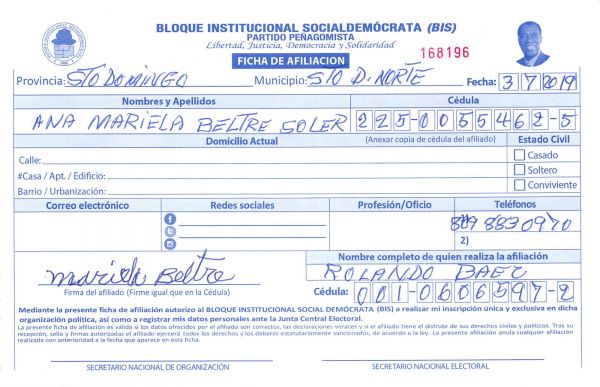 BLOQUE INSTITUCIONAL SOCIALDEMÓCRATA (BIS)
PARTIDO PEÑAGOMISTA
Libertad, Justicia, Democracia y Solidaridad
168196
FICHA DE AFILIACION
Provincia: STO DOMINGO Municipio: STO D. NORTE Fecha: 3/7/2019
Nombres y Apellidos Cédula
ANA MARIELA BELTRE SOLER 225-0055462-5
Domicilio Actual (Anexar copia de cédula del afiliado) Estado Civil
Calle: Casado
#Casa / Apt. / Edificio: Soltero
Barrio / Urbanización: Conviviente
Correo electrónico Redes sociales Profesión/Oficio Teléfonos
809 8830970
2)
Nombre completo de quien realiza la afiliación
Mariela Beltre ROLANDO BAEZ
Firma del afiliado (Firme igual que en la Cédula) Cédula: 001-0606597-2
Mediante la presente ficha de afiliación autorizo al BLOQUE INSTITUCIONAL SOCIAL DEMÓCRATA (BIS) a realizar mi inscripción única y exclusiva en dicha
organización política, así como a registrar mis datos personales ante la Junta Central Electoral.
La presente ficha de afiliación es válida si los datos ofrecidos por el afiliado son correctos, las declaraciones veraces y si el afiliado tiene el disfrute de sus derechos civiles y políticos. Tras su
recepción, sello y firmas autorizadas el afiliado ejercerá todos los derechos y los deberes estatutariamente sancionados, de acuerdo a la ley. La presente afiliación anula cualquier afiliación
realizada con anterioridad a la fecha que aparece en esta ficha.
SECRETARIO NACIONAL DE ORGANIZACIÓN SECRETARIO NACIONAL ELECTORAL